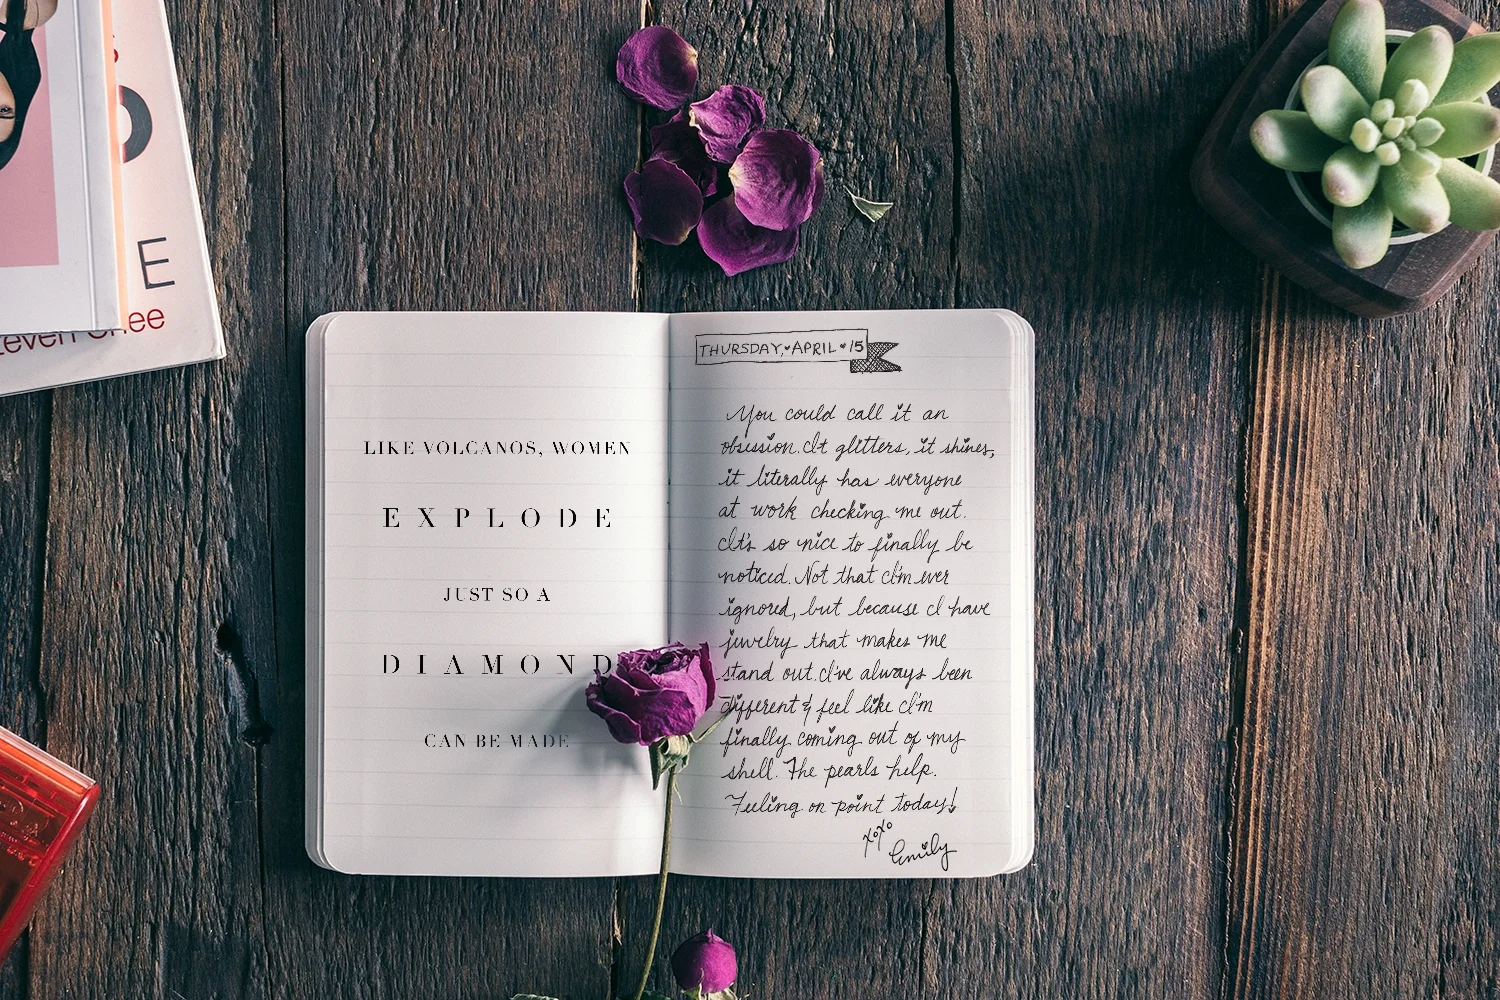 E
LIKE VOLCANOS, WOMEN
EXPLODE
JUST SO A
DIAMOND
CAN BE MADE
THURSDAY, APRIL 15
You could call it an
obsession. It glitters, it shines,
it literally has everyone
at work checking me out.
It's so nice to finally be
noticed. Not that I'm ever
ignored, but because I have
jewelry that makes me
stand out. I've always been
different & feel like I'm
finally coming out of my
shell. The pearls help.
Feeling on point today!
xoxo
Emily